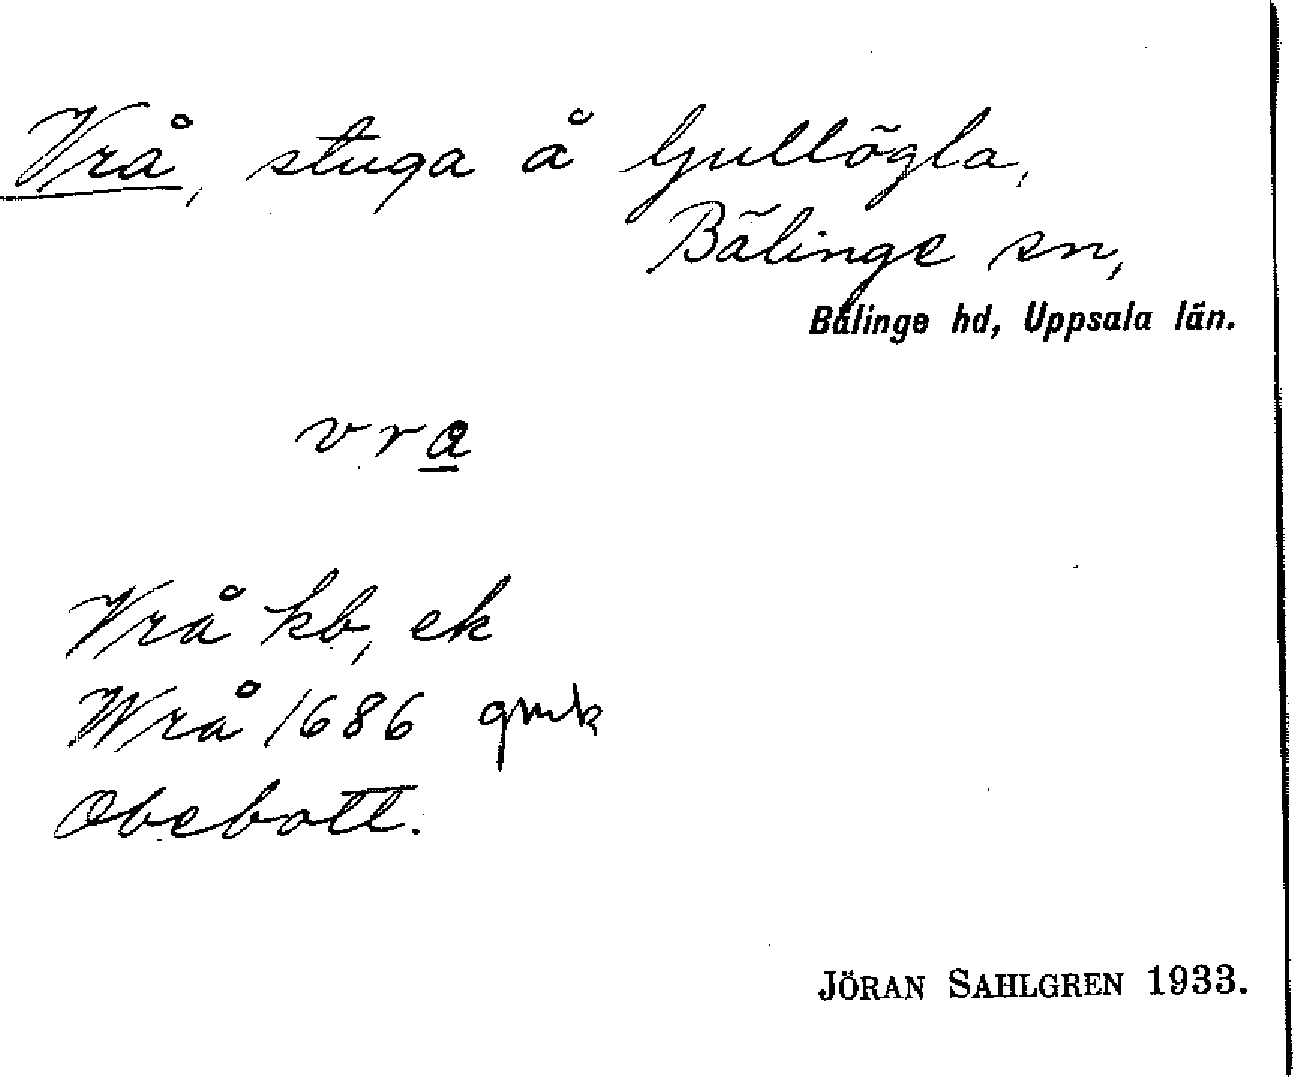 Vrå, stuga å Gullögla,
Bälinge sn,
Bälinge hd, Uppsala län.
vra
Vrå kb, ek
Wrå 1686 gmk
Obebott.
JÖRAN SAHLGREN 1933.